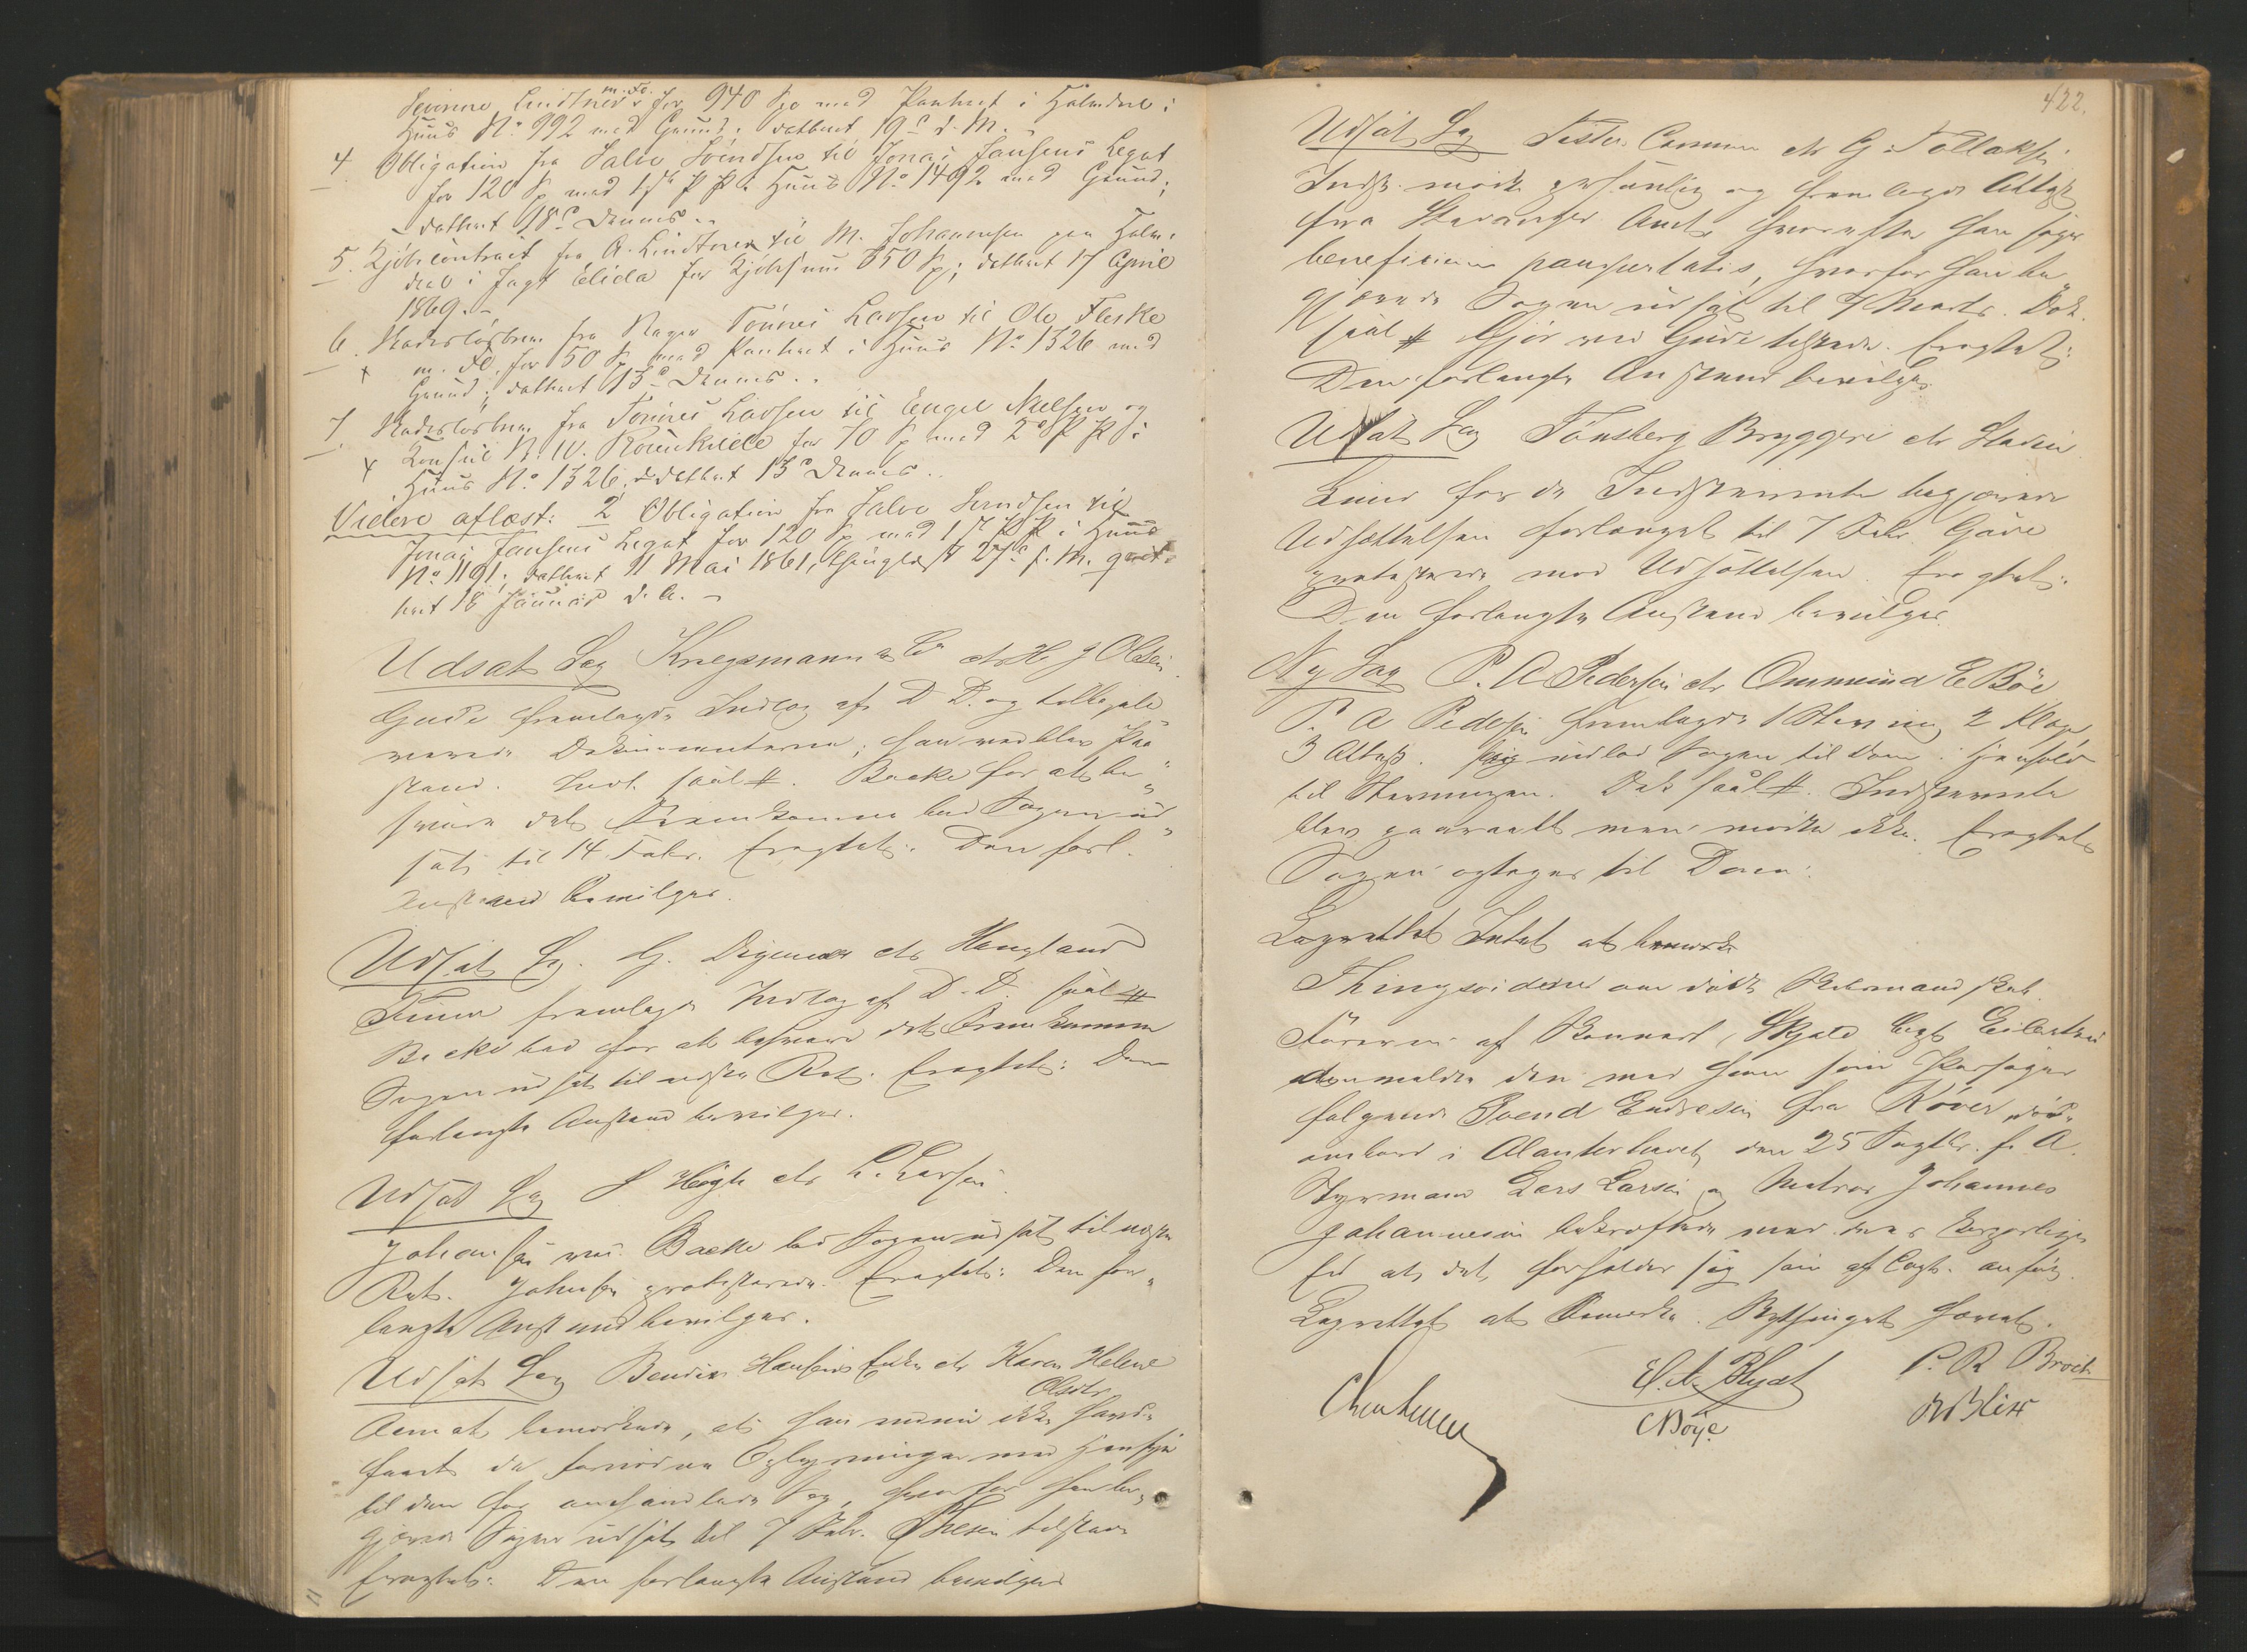 Severine Lindtner m. Fl. for 940 Sp med Panteret i Holmdeel i
Huus No 992 med Grund; dattert 19de d. M.
4 Obligation fra Salve Svendsen til Jonas Jansens Legat
for 120 Sp med 1ste P P i Huus No 1492 med Grund;
dattert 18de Dennes
5. Kjøbecontract fra A. Lindtner til M. Johannesen paa Halv-
deel i Jagt Elida for Kjøbesum 350 Sp; dattert 17 April
1869.-
6. Skadesløsbrev fra Tønnes Larsen til Ole Fleske
m. Fl. for 50 Sp med Panteret i Huus No 1326 med
Grund; dattert 13de Dennes..
7 Skadesløsbrev fra Tønnes Larsen til Engel Nielsen og
Konsul B. W. Rosenkilde for 70 Sp med 2de P P i
Huus No 1326; dattert 13de Dennes..
Videre aflæst: 2 Obligation fra Salve Svendsen til
Jonas Jansens Legat for 120 Sp med 1ste P P i Huus
No 1191; dattert 11 Mai 1861, thinglæst 27de s. M. qvit-
tert 18 Januar d. A. -
Udsat Sag Kriegsmann & Co ctr H J Olsen
Gude fremlagde Indlæg af D. D. og tilbagele-
verede Dokumenterne; han nedlagde Paa-
stand. Indl. saal #. Backe for at be-
svare det Fremkomne bad Sagen ud-
sat til 14 Febr. Eragtet: Den forl.
Anstand bevilges.
Udsat Sag. G. ctr Haugland
fremlagde Indlæg af D. D. saal #
Backe bad for at besvare det Fremkomne
Sagen udsat til næste Ret. Eragtet: Den
forlangte Anstand bevilges.
Udsat Sag J Høgh ctr L. Larsen
Johansen ved Backe bad Sagen udsat til næste
Ret. Johnsen protesterede. Eragtet: Den for-
langte Anstand bevilges.
Udsat Sag Bendix Hansens Enke ctr Karen Helene
Olsdtr
bemærkede, at han endnu ikke havde
faaet de fornødne Oplysninger med Hensyn
til den her omhandlede Sag, hvorfor han be-
gjærede Sagen udsat til 7 Febr. tilstede
Eragtet: Den forlangte Anstand bevilges
422.
Udsat Sag Commune ctr G. Tollaksen
Indst. mødte personlig og fremlagde Attest
fra Stavanger Amt, hvorefter han søger
beneficium paupertatis, hvorfor han be-
gjærede Sagen udsat til 7 Marts. Dok.
saal # ved Gude tilstede. Eragtet:
Den forlangte Anstand bevilges.
Udsat Sag Tønsberg Bryggeri ctr Stadin
for de Indstevnte begjærede
Udsættelsen forlænget til 7 Febr. Gude
protesterede mod Udsættelsen. Eragtet:
Den forlangte Anstand bevilges
Ny Sag P. A Pedersen ctr Ommund E Bøe
P. A Pedersen fremlagde 1 Stevning 2 Klage,
3 Attest. og indlod Sagen til Dom i Henhold
til Stevningen. Dok saal #. Indstevnte
blev paaraabt men mødte ikke. Eragtet
Sagen optages til Dom.
Lagrettet Intet at bemærke
Thingsvidne om død Skibsmandskab.
Føreren af Skonnert, Skjold Capt Eilertsen
anmeldte den med ham som Passager
følgende Svend Endresen fra Kover død
ombord i Atlanterhavet den 25 Septbr. f. A.
Styrmand Lars Larsen og Matros Johannes
Johannesen bekræftede med deres korporlige
Ed at det forholder sig som af Capt. anført.
Lagrettet at bemærke. Bythinget hævet.
P. R Broch
C Bøye